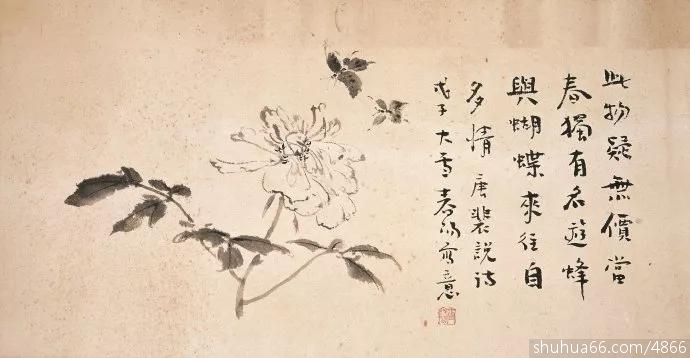 此物疑無價當
春獨有名遊蜂
與蝴蝶來往自
多情 唐裴説詩
戊子大雪 寫意
shuhua66.com/4866